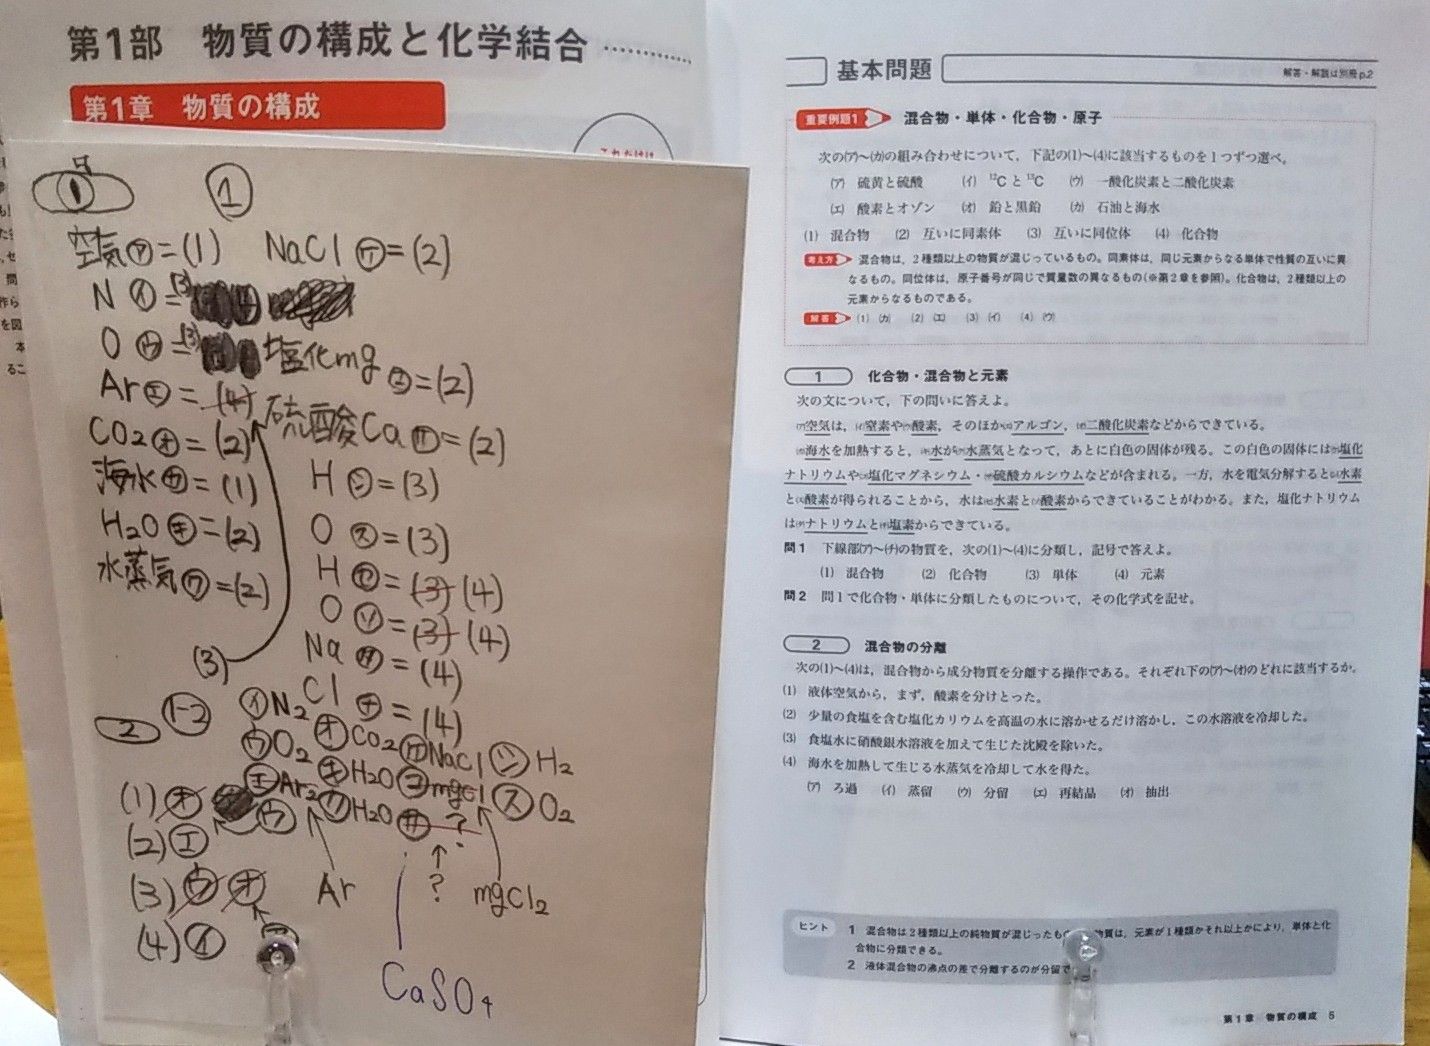 第1部 物質の構成と化学結合
第1章 物質の構成
①
空気㋐=(1)
N ㋑=(3)
O ㋒=(3)
Ar㋓=(4)
CO2㋔=(2)
海水㋕=(1)
H2O㋖=(2)
水蒸気㋗=(2)
(3)
NaCl ㋘=(2)
塩化mg ㋙=(2)
硫酸Ca㋚=(2)
H ㋛=(3)
O ㋜=(3)
H ㋝=(3)(4)
O ㋞=(3)(4)
Na ㋟=(4)
Cl ㋠=(4)
1-2
㋑N2
㋒O2 ㋔CO2 ㋘NaCl ㋛H2
㋓Ar2 ㋖H2O ㋙mgCl ㋜O2
㋗H2O ㋚ ?
Ar ? mgCl2
CaSO4
2
(1)㋔ ㋒
(2)㋓
(3)㋒ ㋔
(4)㋑
基本問題
解答・解説は別冊p.2
重要例題1 混合物・単体・化合物・原子
次の(ア)~(カ)の組み合わせについて，下記の(1)~(4)に該当するものを1つずつ選べ。
(ア) 硫黄と硫酸 (イ) ¹²Cと¹³C (ウ) 一酸化炭素と二酸化炭素
(エ) 酸素とオゾン (オ) 鉛と黒鉛 (カ) 石油と海水
(1) 混合物 (2) 互いに同素体 (3) 互いに同位体 (4) 化合物
考え方 混合物は，2種類以上の物質が混じっているもの。同素体は，同じ元素からなる単体で性質の互いに異
なるもの。同位体は，原子番号が同じで質量数の異なるもの(※第2章を参照)。化合物は，2種類以上の
元素からなるものである。
解答 (1) (カ) (2) (エ) (3) (イ) (4) (ウ)
1 化合物・混合物と元素
次の文について，下の問いに答えよ。
(ア)空気は，(イ)窒素や(ウ)酸素，そのほか(エ)アルゴン，(オ)二酸化炭素などからできている。
(カ)海水を加熱すると，(キ)水が(ク)水蒸気となって，あとに白色の固体が残る。この白色の固体には(ケ)塩化
ナトリウムや(コ)塩化マグネシウム・(サ)硫酸カルシウムなどが含まれる。一方，水を電気分解すると(シ)水素
と(ス)酸素が得られることから，水は(セ)水素と(ソ)酸素からできていることがわかる。また，塩化ナトリウム
は(タ)ナトリウムと(チ)塩素からできている。
問1 下線部(ア)~(チ)の物質を，次の(1)~(4)に分類し，記号で答えよ。
(1) 混合物 (2) 化合物 (3) 単体 (4) 元素
問2 問1で化合物・単体に分類したものについて，その化学式を記せ。
2 混合物の分離
次の(1)~(4)は，混合物から成分物質を分離する操作である。それぞれ下の(ア)~(オ)のどれに該当するか。
(1) 液体空気から，まず，酸素を分けとった。
(2) 少量の食塩を含む塩化カリウムを高温の水に溶かせるだけ溶かし，この水溶液を冷却した。
(3) 食塩水に硝酸銀水溶液を加えて生じた沈殿を除いた。
(4) 海水を加熱して生じる水蒸気を冷却して水を得た。
(ア) ろ過 (イ) 蒸留 (ウ) 分留 (エ) 再結晶 (オ) 抽出
ヒント 1 混合物は2種類以上の純物質が混じったもの 物質は，元素が1種類かそれ以上かにより，単体と化
合物に分類できる。
2 液体混合物の沸点の差で分離するのが分留で
第1章 物質の構成 5